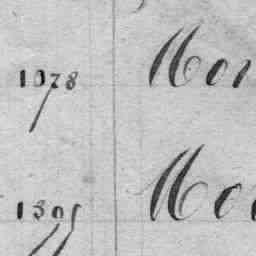 1078 Mor
1305 Mo